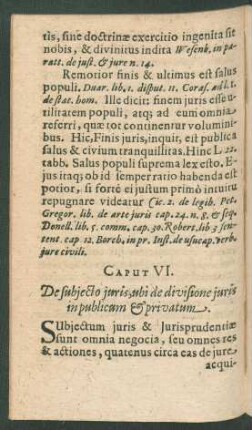 tis, sine doctrinæ exercitio ingenita sit
nobis, & divinitus indita Wesenb. in pa-
ratt. de just. & jure n. 14.
Remotior finis & ultimus est salus
populi. Duar. lib. 1. disput. 11. Coras. ad l. 2.
de stat. hom. Ille dicit: finem juris esse u-
tilitatem populi, atq; ad eum omnia
referri, quæ tot continentur volumini-
bus. Hic, Finis juris, inquit, est publica
salus & civium tranquillitas. Hinc L 22.
tabb. Salus populi suprema lex esto. E-
jus itaq; ob id semper ratio habenda est
potior, si fortè ei justum primò intuitu
repugnare videatur Cic. 2. de legib. Pet.
Gregor. lib. de arte juris cap. 24. n. 8. & seq.
Donell. lib. 5. comm. cap. 30. Robert. lib. 3 sen-
tent. cap 12. Borch. in pr. Inst. de usucap. verb.
jure civili.
CAPUT VI.
De subjecto juris, ubi de divisione juris
in publicum & privatum.
SUbjectum juris & Jurisprudentiæ
sunt omnia negocia, seu omnes res
& actiones, quatenus circa eas de jure
acqui-